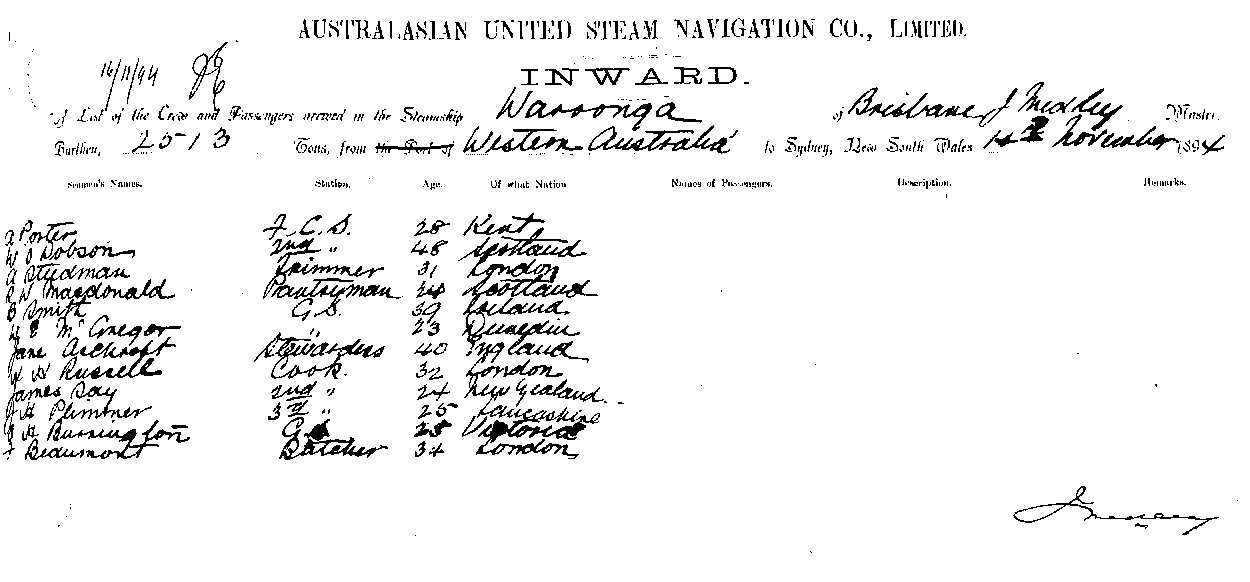 AUSTRALASIAN UNITED STEAM NAVIGATION CO., LIMITED.
16/11/94
INWARD.
of List of the Crew and Passengers arrived in the Steamship Waroonga of Brisbane J Medley Master
Burthen, 2513 Tons, from the Port of Western Australia to Sydney, New South Wales 14th November 1894
Seamen's Names. Station. Age. Of what Nation Names of Passengers. Description. Remarks.
A Porter F.C.S. 28 Kent
W J Dobson 2nd " 48 Scotland
A Stedman Trimmer 31 London
R W Macdonald Pantryman 24 Scotland
B Smith G.S. 39 Ireland
H E McGregor " 23 Dunedin
Jane Ashcroft Stewardess 40 England
H Russell Cook. 32 London
James Day 2nd " 24 New Zealand
J H Plimmer 3rd " 25 Lancashire
H Burrington G.S. 25 Victoria
F Beaumont Butcher 34 London
J Medley